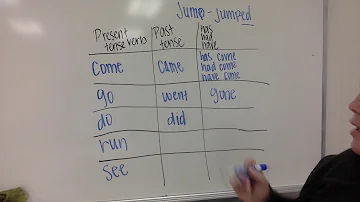 jump - jumped
Present tense verb
Past tense
has
had
have
come
came
has come
had come
have come
go
went
gone
do
did
run
see